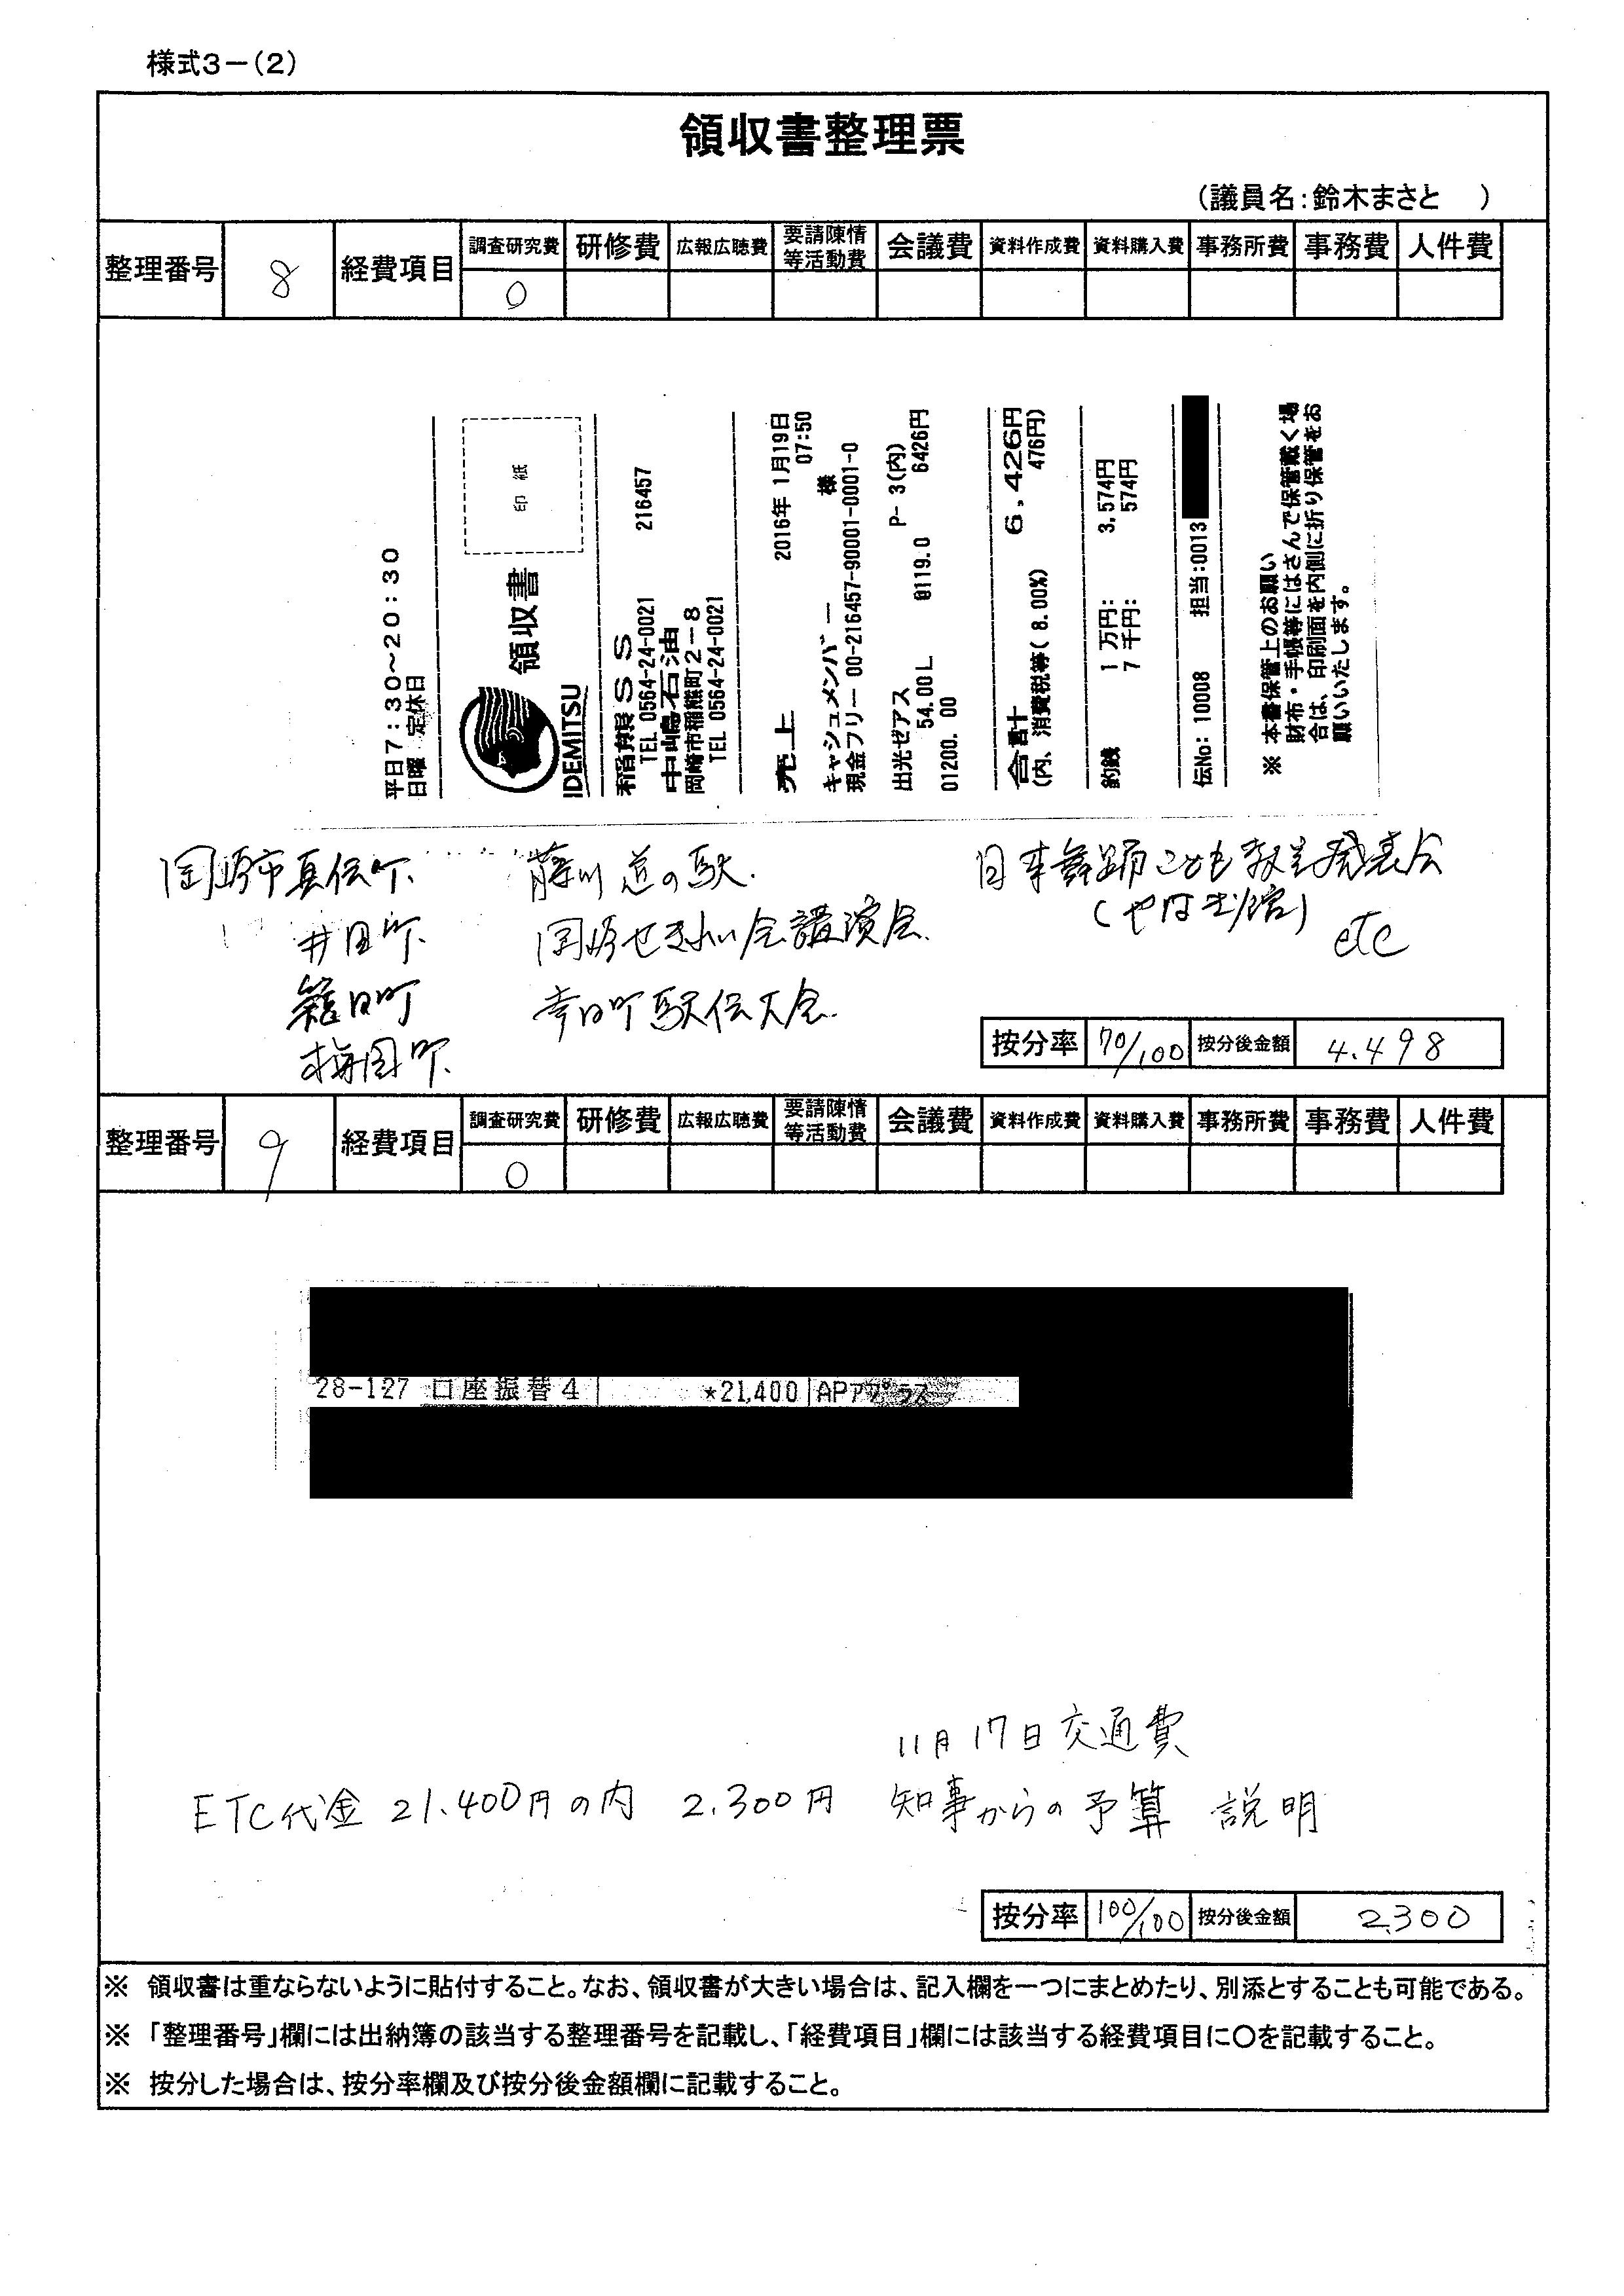 様式3－(2)
領収書整理票
(議員名：鈴木まさと　)
整理番号 8 経費項目 調査研究費 研修費 広報広聴費 要請陳情等活動費 会議費 資料作成費 資料購入費 事務所費 事務費 人件費
○
平日7：30～20：30
日曜 定休日
IDEMITSU 領収書 印紙
稲熊SS 216457
TEL 0564-24-0021
中嶋石油
岡崎市稲熊町2－8
TEL 0564-24-0021
売上 2016年 1月19日
07:50
キャッシュメンバー 様
現金フリー 00-216457-90001-0001-0
出光ゼアス P- 3(内)
54.00L @119.0 6426円
01200. 00
合計 6,426円
(内、消費税等( 8.00%) 476円)
1 万円: 3,574円
釣銭 7 千円: 574円
伝No: 10008 担当:0013
※ 本書保管上のお願い
財布・手帳等にはさんで保管戴く場
合は、印刷面を内側に折り保管をお
願いいたします。
岡崎市真伝町、 藤川道の駅、 日本舞踊こども教室発表会
井田町、 岡崎せきれい会講演会、 (やはぎ館) etc
籠田町 幸田町駅伝大会、
梅園町、
按分率 70/100 按分後金額 4.498
整理番号 9 経費項目 調査研究費 研修費 広報広聴費 要請陳情等活動費 会議費 資料作成費 資料購入費 事務所費 事務費 人件費
○
28-1-27 口座振替4 *21,400 APアプラス
11月17日交通費
ETC代金 21.400円の内 2.300円 知事からの予算 説明
按分率 100/100 按分後金額 2.300
※ 領収書は重ならないように貼付すること。なお、領収書が大きい場合は、記入欄を一つにまとめたり、別添とすることも可能である。
※ 「整理番号」欄には出納簿の該当する整理番号を記載し、「経費項目」欄には該当する経費項目に○を記載すること。
※ 按分した場合は、按分率欄及び按分後金額欄に記載すること。